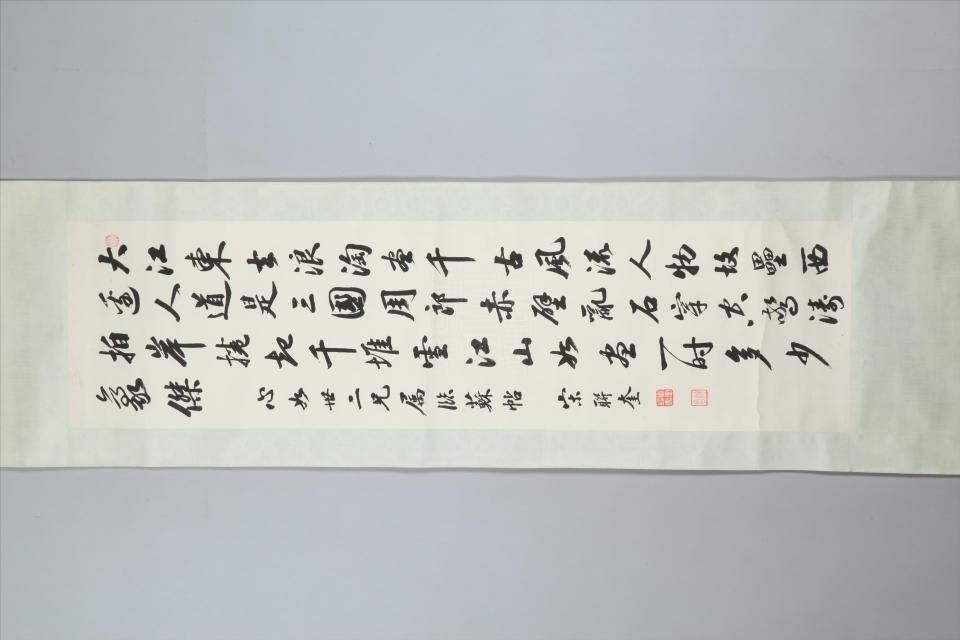 大江東去浪淘盡千古風流人物故壘西
邊人道是三國周郎赤壁亂石穿空驚濤
拍岸捲起千堆雪江山如畫一時多少
豪傑
心如世二兄属臨蘇帖
宋聯奎